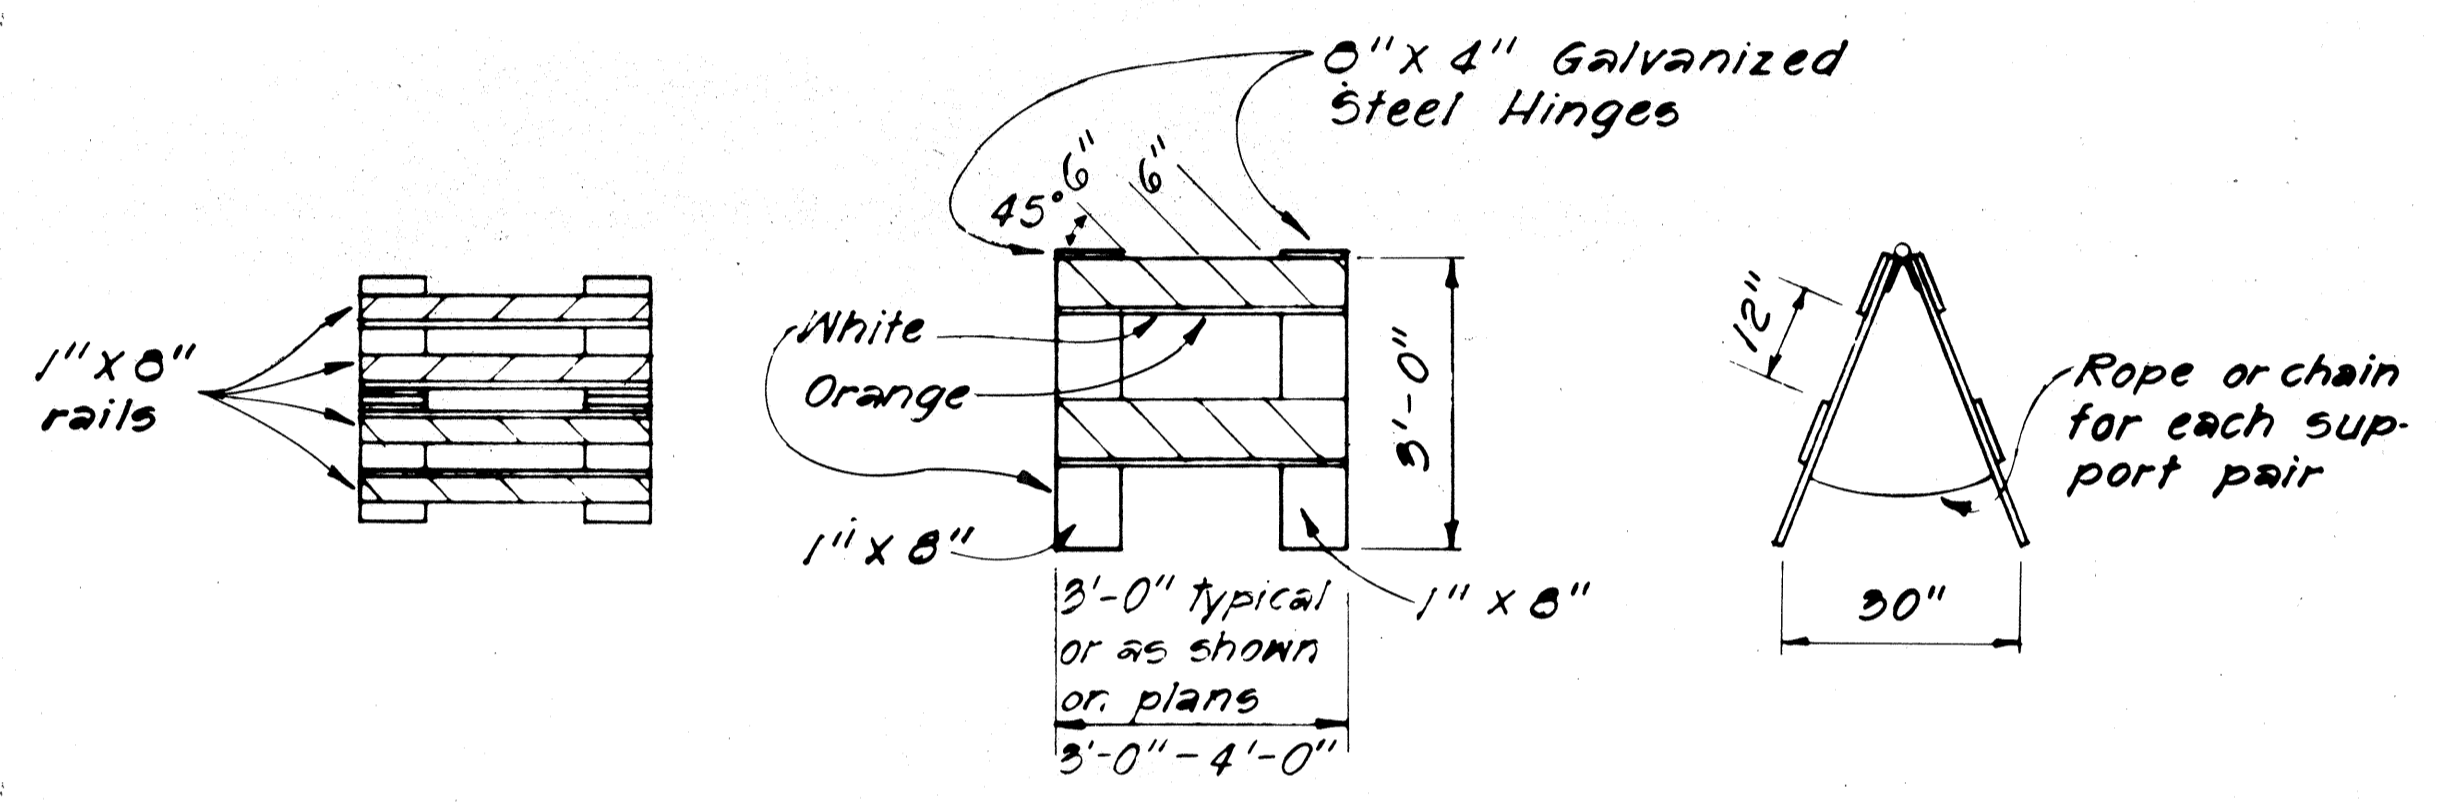 1" X 8"
rails
8" X 4" Galvanized
Steel Hinges
45°
6"
6"
White
Orange
1" X 8"
3'-0"
3'-0" typical
or as shown
on plans
3'-0" - 4'-0"
1" X 8"
12"
30"
Rope or chain
for each sup-
port pair